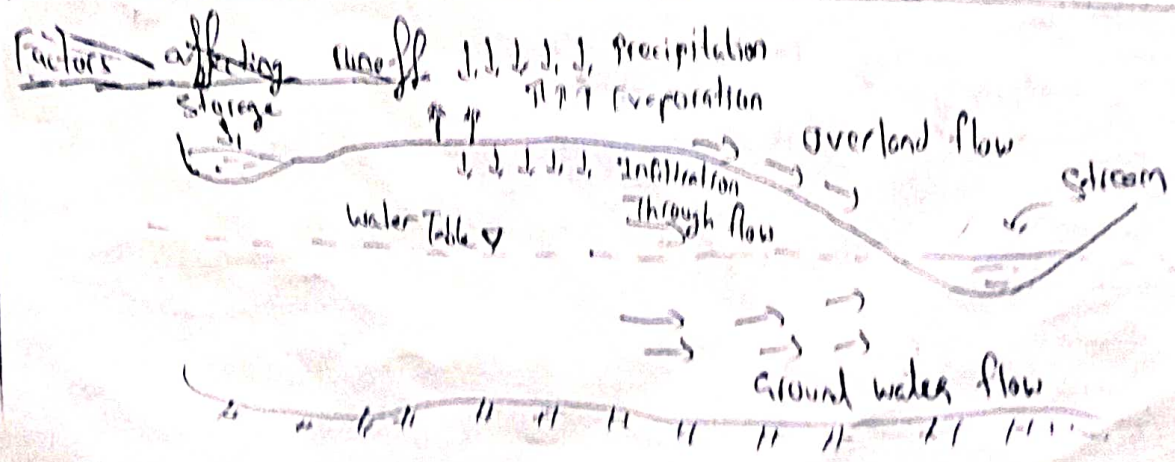 Factors affecting runoff
Precipitation
Evaporation
Storage
Overland flow
Stream
Infiltration
Through flow
Water Table
Ground water flow